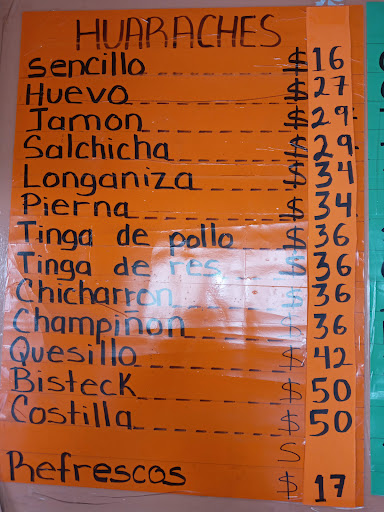 HUARACHES
Sencillo $ 16
Huevo $ 27
Jamon $ 29
Salchicha $ 29
Longaniza $ 34
Pierna $ 34
Tinga de pollo $ 36
Tinga de res $ 36
Chicharron $ 36
Champiñon $ 36
Quesillo $ 42
Bisteck $ 50
Costilla $ 50
S
Refrescos $ 17